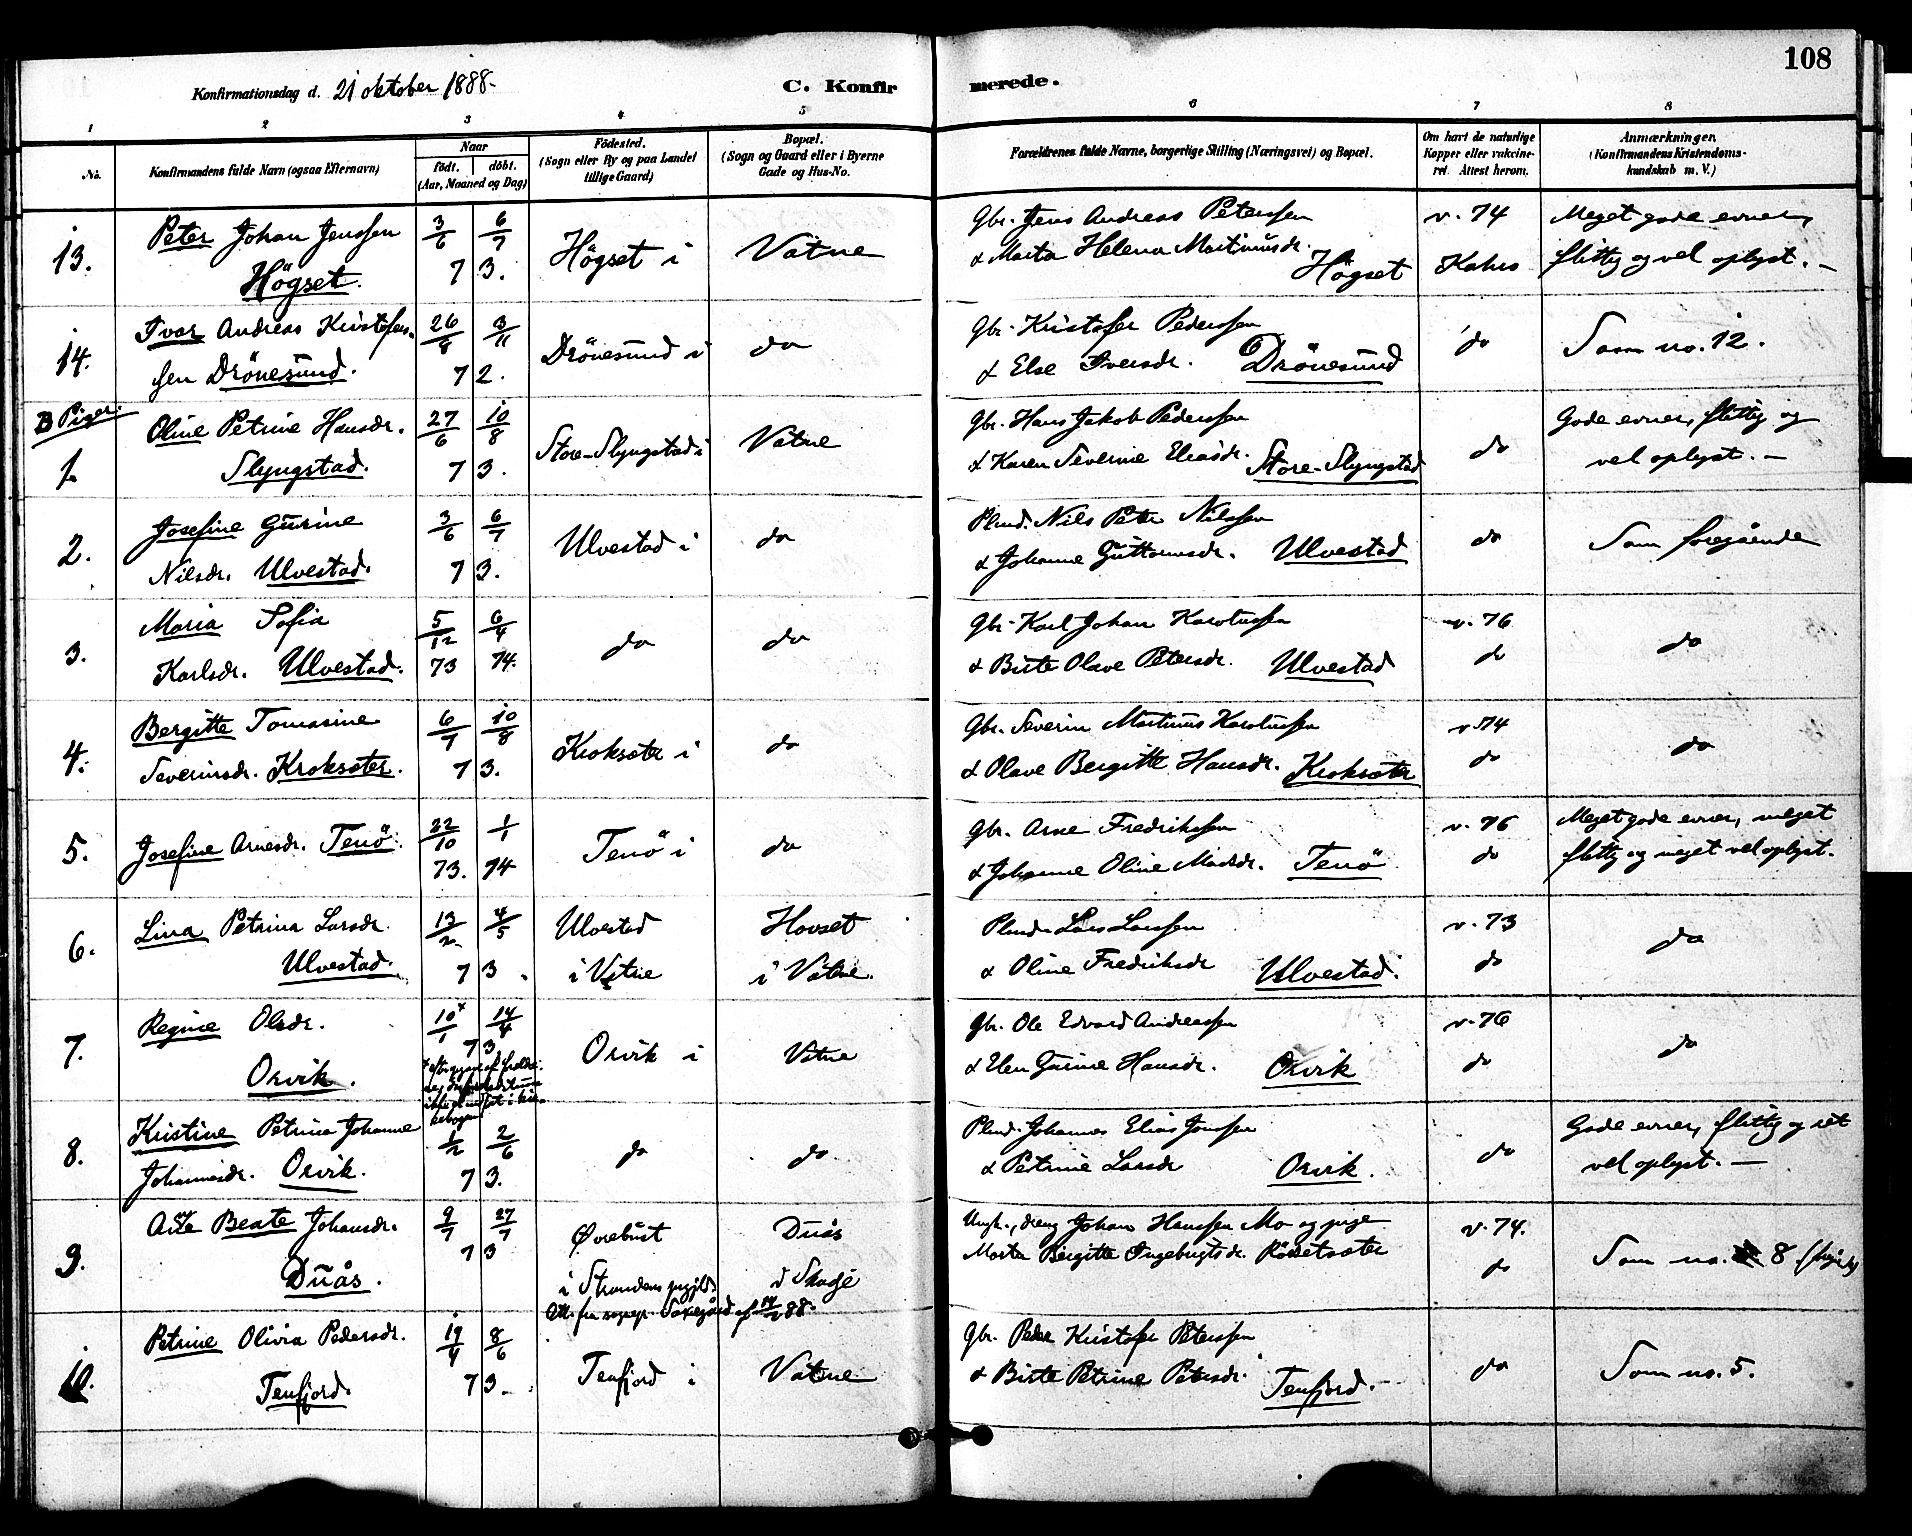 108
Konfirmationsdag d. 21 oktober 1888.
C. Konfirmerede.
1 2 3 4 5 6 7 8
No.
Konfirmandens fulde Navn (ogsaa Efternavn)
Naar
födt. döbt.
(Aar, Maaned og Dag)
Födested.
(Sogn eller By og paa Landet
tillige Gaard)
Bopæl.
(Sogn og Gaard eller i Byerne
Gade og Hus-No.
Forældrenes fulde Navne, borgerlige Stilling (Næringsvei) og Bopæl.
Om havt de naturlige
Kopper eller vakcine-
ret. Attest herom.
Anmærkninger.
(Konfirmandens Kristendoms-
kundskab m. V.)
13. Peter Johan Jenssen 3/6 6/7 Högset i Vatne Gbr. Jens Andreas Peterssen v. 74 Meget gode evner,
Högset. 7 3. & Marta Helena Martinusdr. Högset Kahrs flittig og vel oplyst. -
14. Ivar Andreas Kristofers- 26/8 3/11 Drönesund i do Gbr. Kristofer Pederssen do Som no. 12.
sen Drönesund. 7 2. & Else Iversdr. Drönesund
B Piger.
1. Oline Petrine Hansdr. 27/6 10/8 Store-Slyngstad i Vatne Gbr. Hans Jakob Pederssen do Gode evner, flittig og
Slyngstad. 7 3. & Karen Severine Eliasdr. Store-Slyngstad vel oplyst. -
2. Josefine Gurine 3/6 6/7 Ulvestad i do Plmd. Nils Peter Nilssen do Som foregående
Nilsdr. Ulvestad. 7 3. & Johanne Guttormsdr. Ulvestad
3. Maria Sofia 5/12 6/4 do do Gbr. Karl Johan Karolussen v. 76 do
Karlsdr. Ulvestad. 73 74. & Birte Olave Petersdr. Ulvestad do
4. Bergitte Tomasine 6/7 10/8 Kroksæter i do Gbr. Severin Martinus Karolussen v. 74 do
Severinsdr. Kroksæter. 7 3. & Olave Bergitte Hansdr. Kroksæter do
5. Josefine Arnesdr. Tenö. 22/10 1/1 Tenö i do Gbr. Arne Fredrikssen v. 76 Meget gode evner, meget
73. 74 & Johanne Oline Madsdr. Tenö do flittig og meget vel oplyst.
6. Lina Petrina Larsdr. 13/2 4/5 Ulvestad Hovset Plmd. Lars Larssen v. 73 do
Ulvestad. 7 3. i Vatne i Vatne. & Oline Fredriksdr Ulvestad. do
7. Regine Olsdr. 10x/1 14/4 Orvik i Vatne Gbr. Ole Edvard Andreassen v. 76 do
Orvik. 7 3 & Elen Gurine Hansdr. Orvik do
ikke i kir-
kebogen
8. Kristine Petrina Johanne 1/2 2/6 do do Plmd. Johannes Elias Jonssen do Gode evner, flittig og ret
Johannesdr. Orvik. 7 3. & Petrine Larsdr Orvik. vel oplyst. -
9. Beate Johansdr. 9/7 27/7 Ovrebust Duås Ungk., dreng Johan Hanssen Mo og pige v. 74. Som no. 8
Duås. 7 3 i Strandens prgjld. i Skodje Marta Bergitte Ingebrigtsdr. do
Att. fra sogepr. af 14/2 88.
10. Petrine Olivia Pedersdr. 19/4 8/6 Tenfjord i Vatne Gbr. Peder Kristofer Peterssen do Som no. 5.
Tenfjord. 7 3. & Birte Petrine Petersdr. Tenfjord.